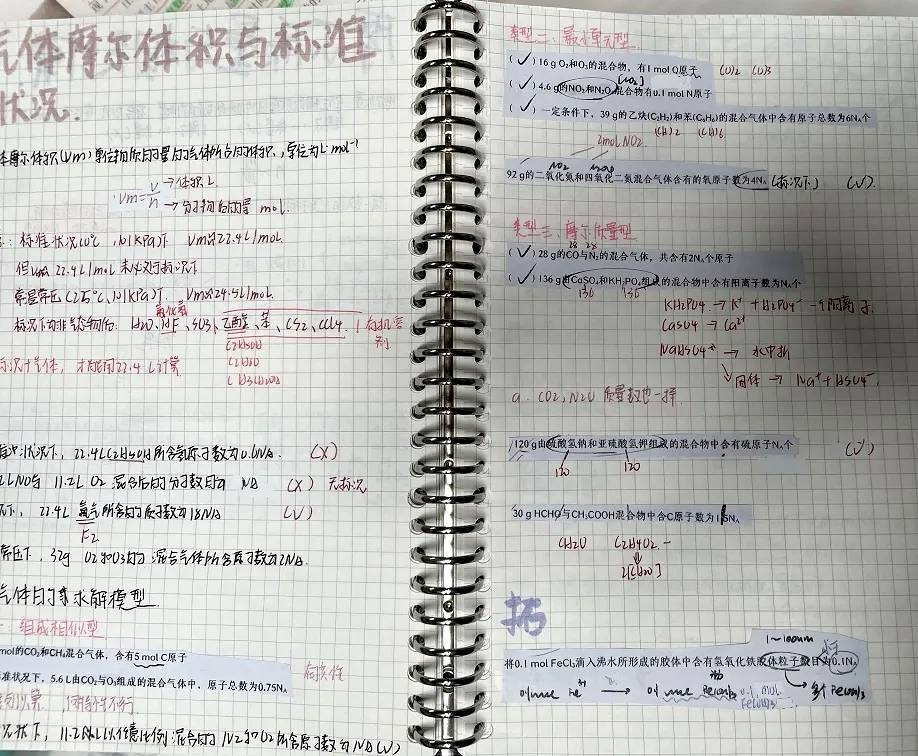 气体摩尔体积与标准
状况.
体摩尔体积(Vm)单位物质的量的气体所占的体积.,单位为L·mol⁻¹
Vm=V/n →体积 L
→分物质的量 mol.
标准状况(0℃,101KPa)下 Vm≈22.4L/mol.
但 22.4L/mol 未必处于标况下
常温常压(25℃,101KPa)下 Vm≈24.5L/mol.
氟化氢
标况下的非气态物质: H2O、HF、SO3、乙醇、苯、CS2、CCl4.
标况下气体, 才能用22.4 L计算
准状况下, 22.4L C2H5OH所含氢原子数为6NA. (X)
2LNO与 11.2L O2 混合后的分子数目为 NA (X) 无标况
下, 22.4L 氟气所含的质子数为18NA (√)
F2
常压下, 32g O2和O3的混合气体所含原子数为2NA.
气体的求解模型
一 组成相似型
mol的CO₂和CH₄混合气体,含有5 mol C原子
准状况下,5.6 L由CO₂与O₃组成的混合气体中,原子总数为0.75Nₐ
况下, 11.2L以任意比例混合的 N2和O2所含原子数为NA(√)
类型二、最小单元型
(√)16 g O₂和O₃的混合物,有1 mol O原子 (O)2 (O)3
[NO2]
(√)4.6 g的NO₂和N₂O₄混合物有0.1 mol N原子
(√)一定条件下,39 g的乙炔(C₂H₂)和苯(C₆H₆)的混合气体中含有原子总数为6Nₐ个
(CH)2 (CH)6
2molNO2
NO2
92 g的二氧化氮和四氧化二氮混合气体含有的氧原子数为4Nₐ (标况下) (√).
类型三、摩尔质量型
28 28
(√)28 g的CO与N₂的混合气体,共含有2Nₐ个原子
(√)136 g由CaSO₄和KH₂PO₄组成的混合物中含有阳离子数为Nₐ个
136 136
KH2PO4 → K⁺ + H2PO4⁻ 一个阳离子.
CaSO4 → Ca²⁺
NaHSO4 → 水中
↘固体 → Na⁺+HSO4⁻.
a. CO2, N2O 质量数也一样
120 g由硫酸氢钠和亚硫酸氢钾组成的混合物中含有硫原子Nₐ个 (√)
120 120
30 g HCHO与CH₃COOH混合物中含C原子数为1Nₐ
CH2O C2H4O2.
⇓
2[CH2O]
拓
1~100nm
将0.1 mol FeCl₃滴入沸水所形成的胶体中含有氢氧化铁胶体粒子数目为0.1Nₐ
0.1 mol Fe³⁺ → 0.1 mol Fe(OH)3 0.1 mol. →多个Fe(OH)3
Fe(OH)3